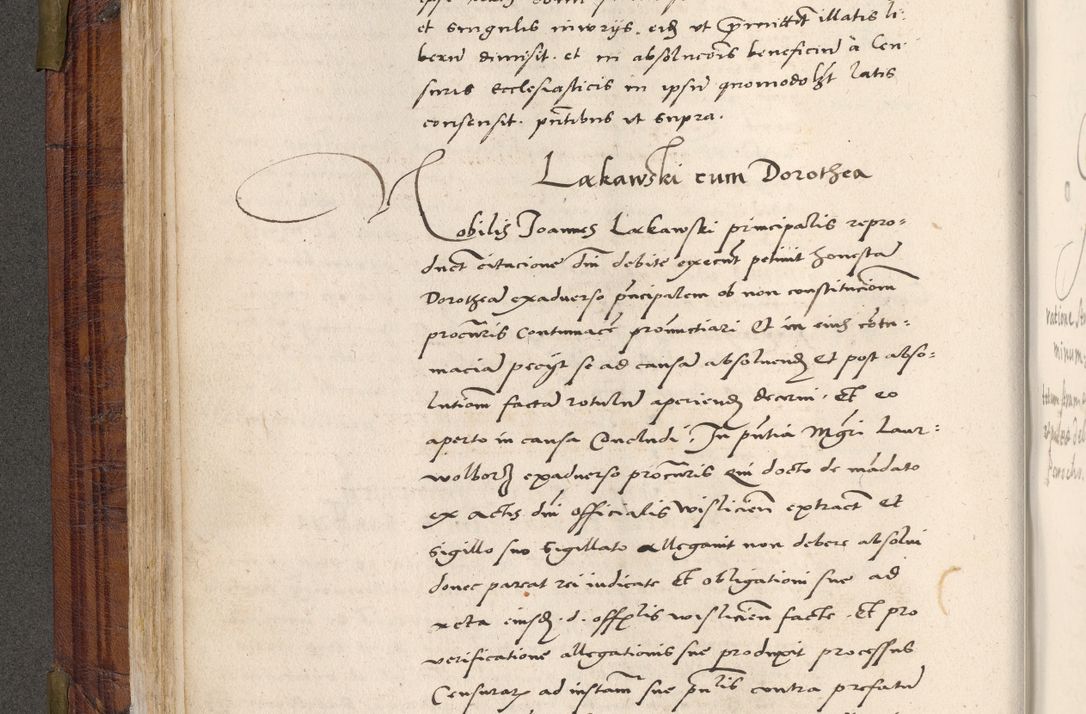 et singulis iniurys. eidem ut premittitur illatis li-
berum dimisit. et in absolucionis beneficium à Cen
suris Ecclesiasticis in ipsum quomodolibet latis
consensit. pntibus ut supra.
Lakawski cum Dorothea
Nobilis Joannes Lakawski principalis repro=
duct citacione dni debite execut petiuit honestam
Dorotheam exaduerso pncipalem ob non constitucionem
procuris Contumacem pronuctiari Et in eius contu=
maciam pecyt se ad causam absoluendum Et post abso=
lutionem factam rotulum aperiendum decerni. Et eo
aperto in causa Concludi. In pntia Mgri Laur:
wolborz exaduerso procuris Qui docto de mandato
ex actis dni officialis wislicien extract Et
Sigillo suo Sigillato allegauit non debere absolui
donec pareat rei iudicate Et obligationi sue ad
acta eiusdem d. offlis wislicien facte. Et pro
verificatione allegationis sue produxit processus
Censurarum ad instam sue pnlis contra prefatum
ratione
minum